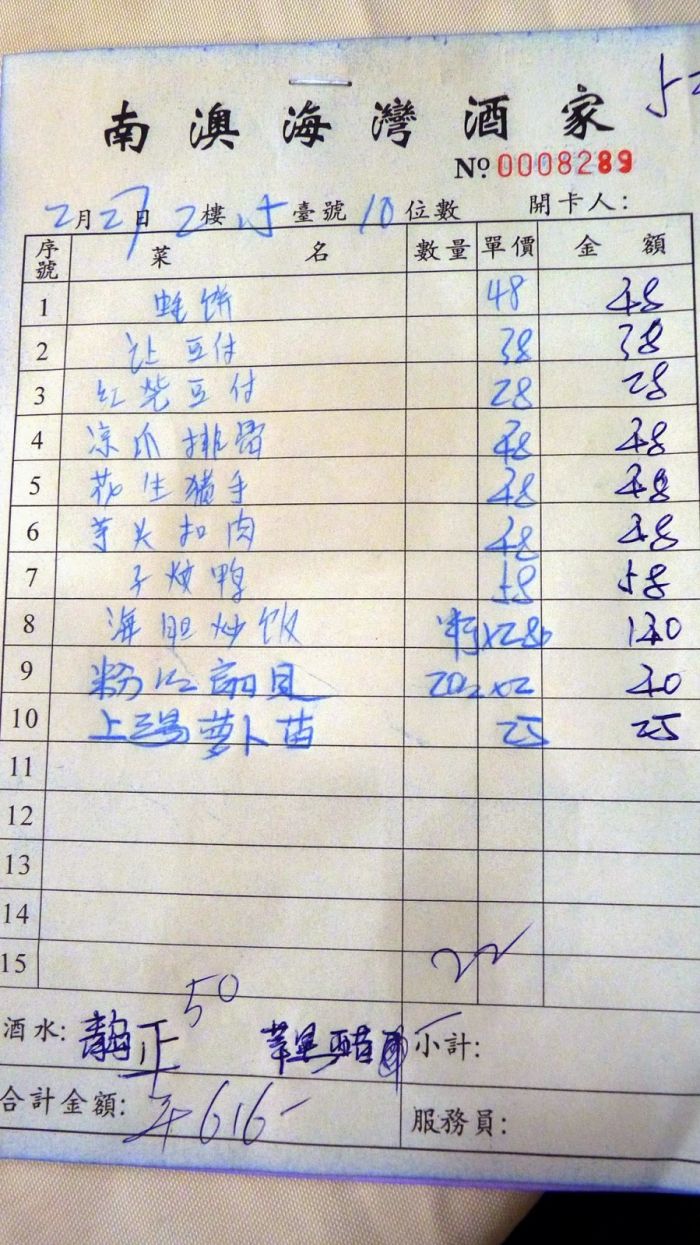 南澳海灣酒家
Nº 0008289
2月27日 2樓 15臺號 10位數 開卡人:
序號 菜名 數量 單價 金額
1 蚝饼 48 48
2 让豆付 38 38
3 红烧豆付 28 28
4 凉瓜排骨 48 48
5 花生猪手 48 48
6 芋头扣肉 48 48
7 子炆鸭 58 58
8 海胆炒饭 X28 140
9 粉 扇贝 X2 40
10 上汤萝卜苗 25 25
11
12
13
14
15 22
50
酒水: 正 苹果醋 小計:
合計金額: 616 服務員: